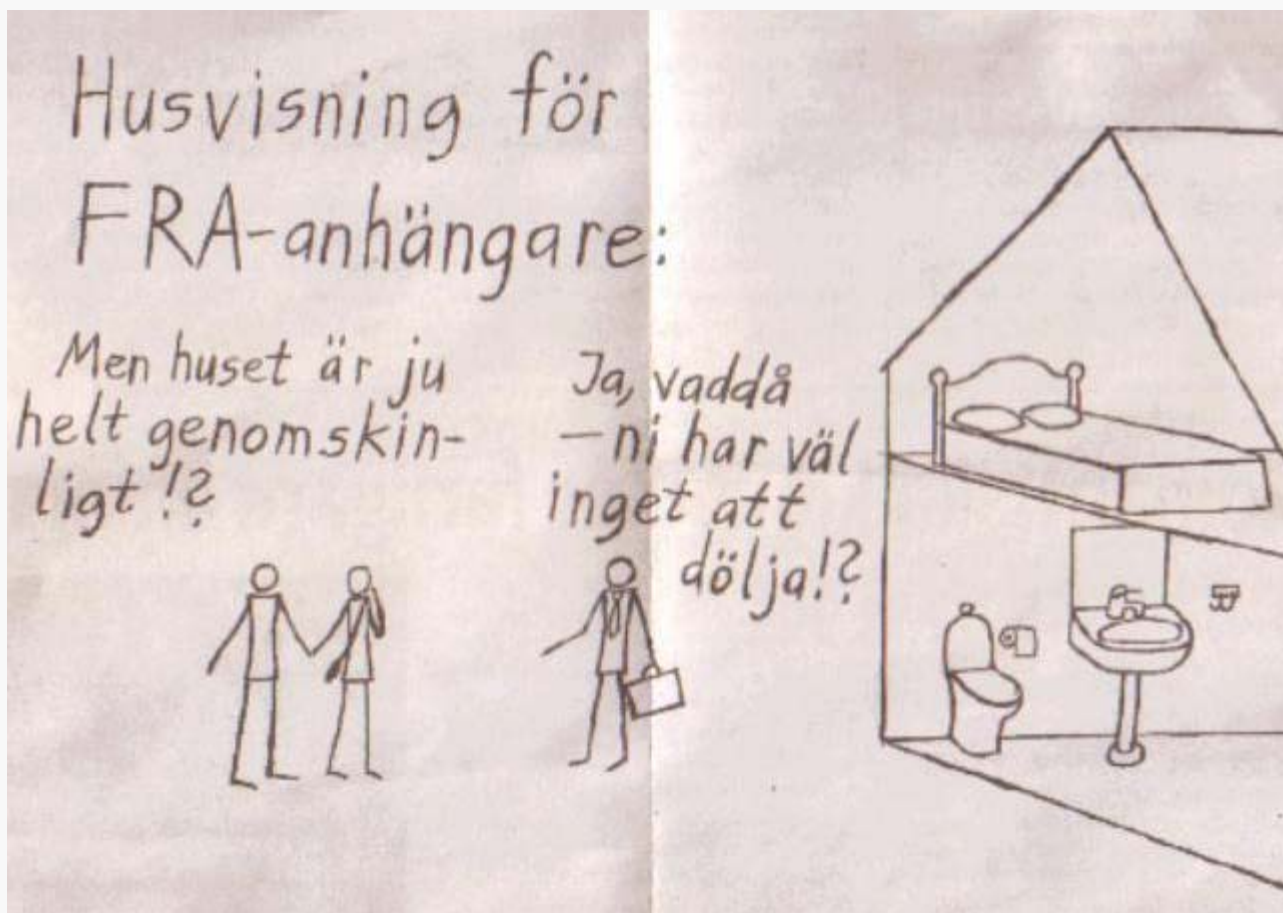 Husvisning för
FRA-anhängare:
Men huset är ju
helt genomskin-
ligt!?
Ja, vaddå
–ni har väl
inget att
dölja!?